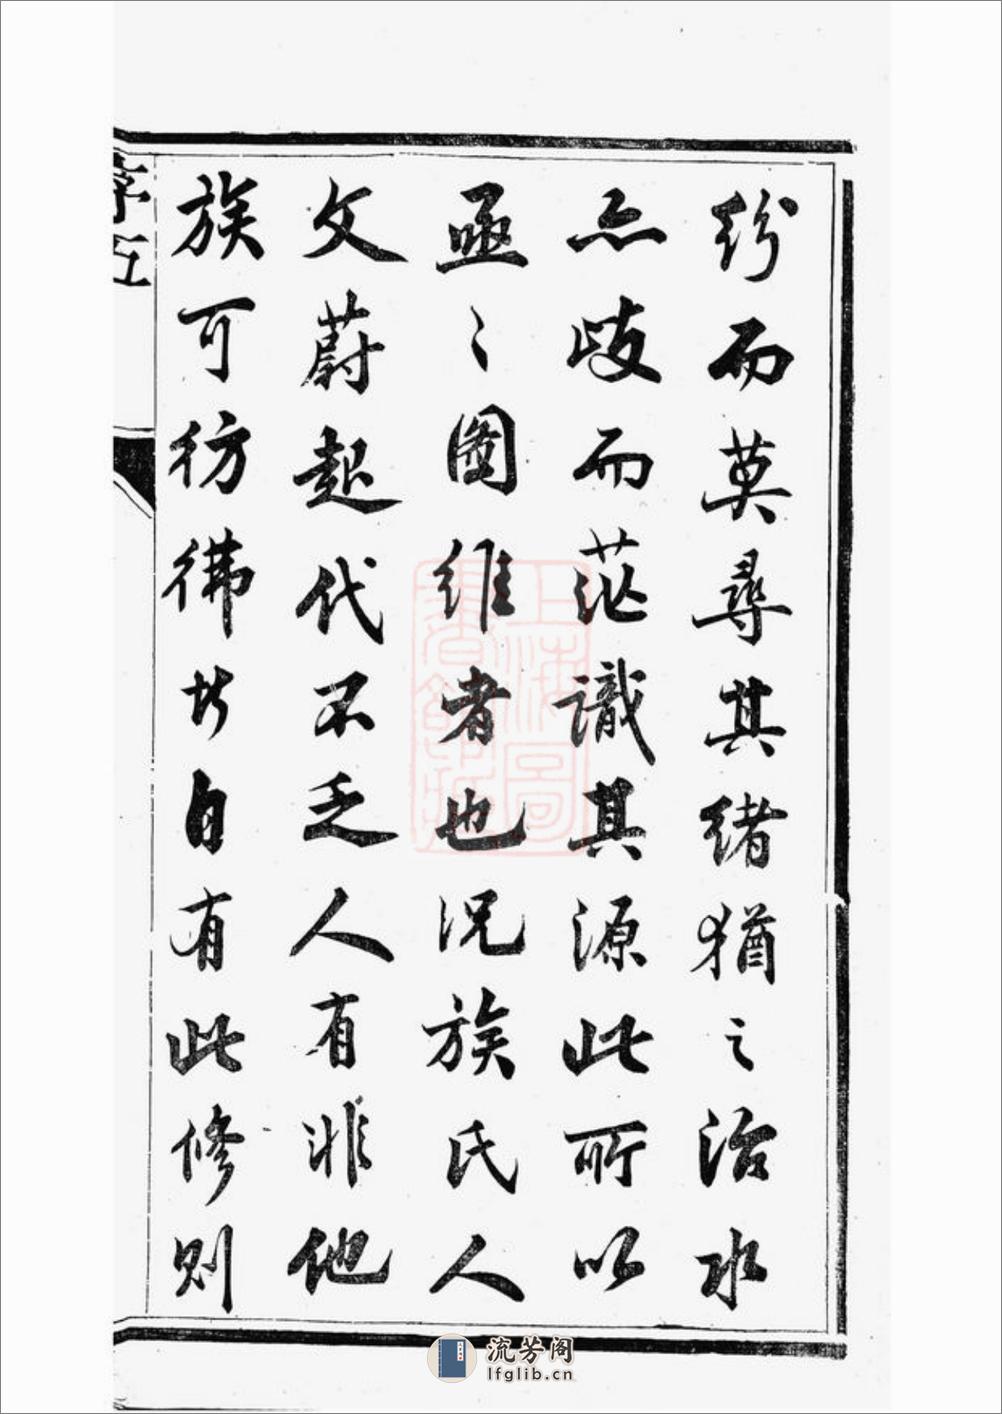 紛而莫尋其緒猶之治水
亦歧而茫識其源此所以
亟〻圖維者也況族氏人
文蔚起代不乏人有非他
族可彷彿自有此修則
序五
上海圖
書館藏
流芳阁
lfglib.cn